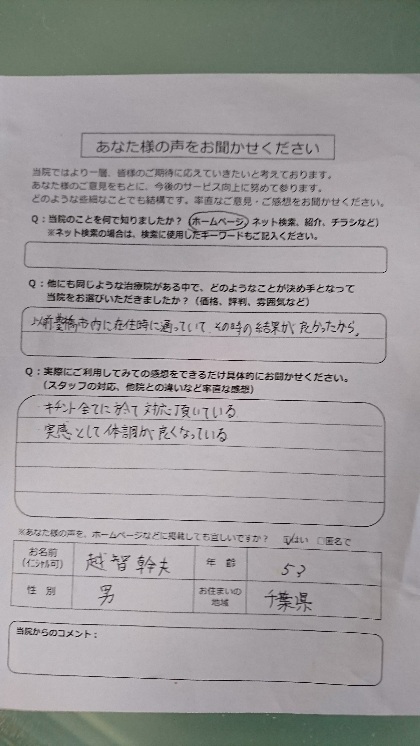 あなた様の声をお聞かせください
当院ではより一層、皆様のご期待に応えていきたいと考えております。
あなた様のご意見をもとに、今後のサービス向上に努めて参ります。
どのような些細なことでも結構です。率直なご意見・ご感想をお聞かせください。
Q:当院のことを何で知りましたか?(ホームページ、ネット検索、紹介、チラシなど)
※ネット検索の場合は、検索に使用したキーワードもご記入ください。
Q:他にも同じような治療院がある中で、どのようなことが決め手となって
当院をお選びいただきましたか?(価格、評判、雰囲気など)
以前豊橋市内に在住時に通っていて、その時の結果が良かったから。
Q:実際にご利用してみての感想をできるだけ具体的にお聞かせください。
(スタッフの対応、他院との違いなど率直な感想)
・キチント全てに於て対応頂いている
・実感として体調が良くなっている
※あなた様の声を、ホームページなどに掲載しても宜しいですか? ☑はい □匿名で
お名前 越智幹夫 年齢 53
(イニシャル可)
性別 男 お住まいの 千葉県
地域
当院からのコメント: